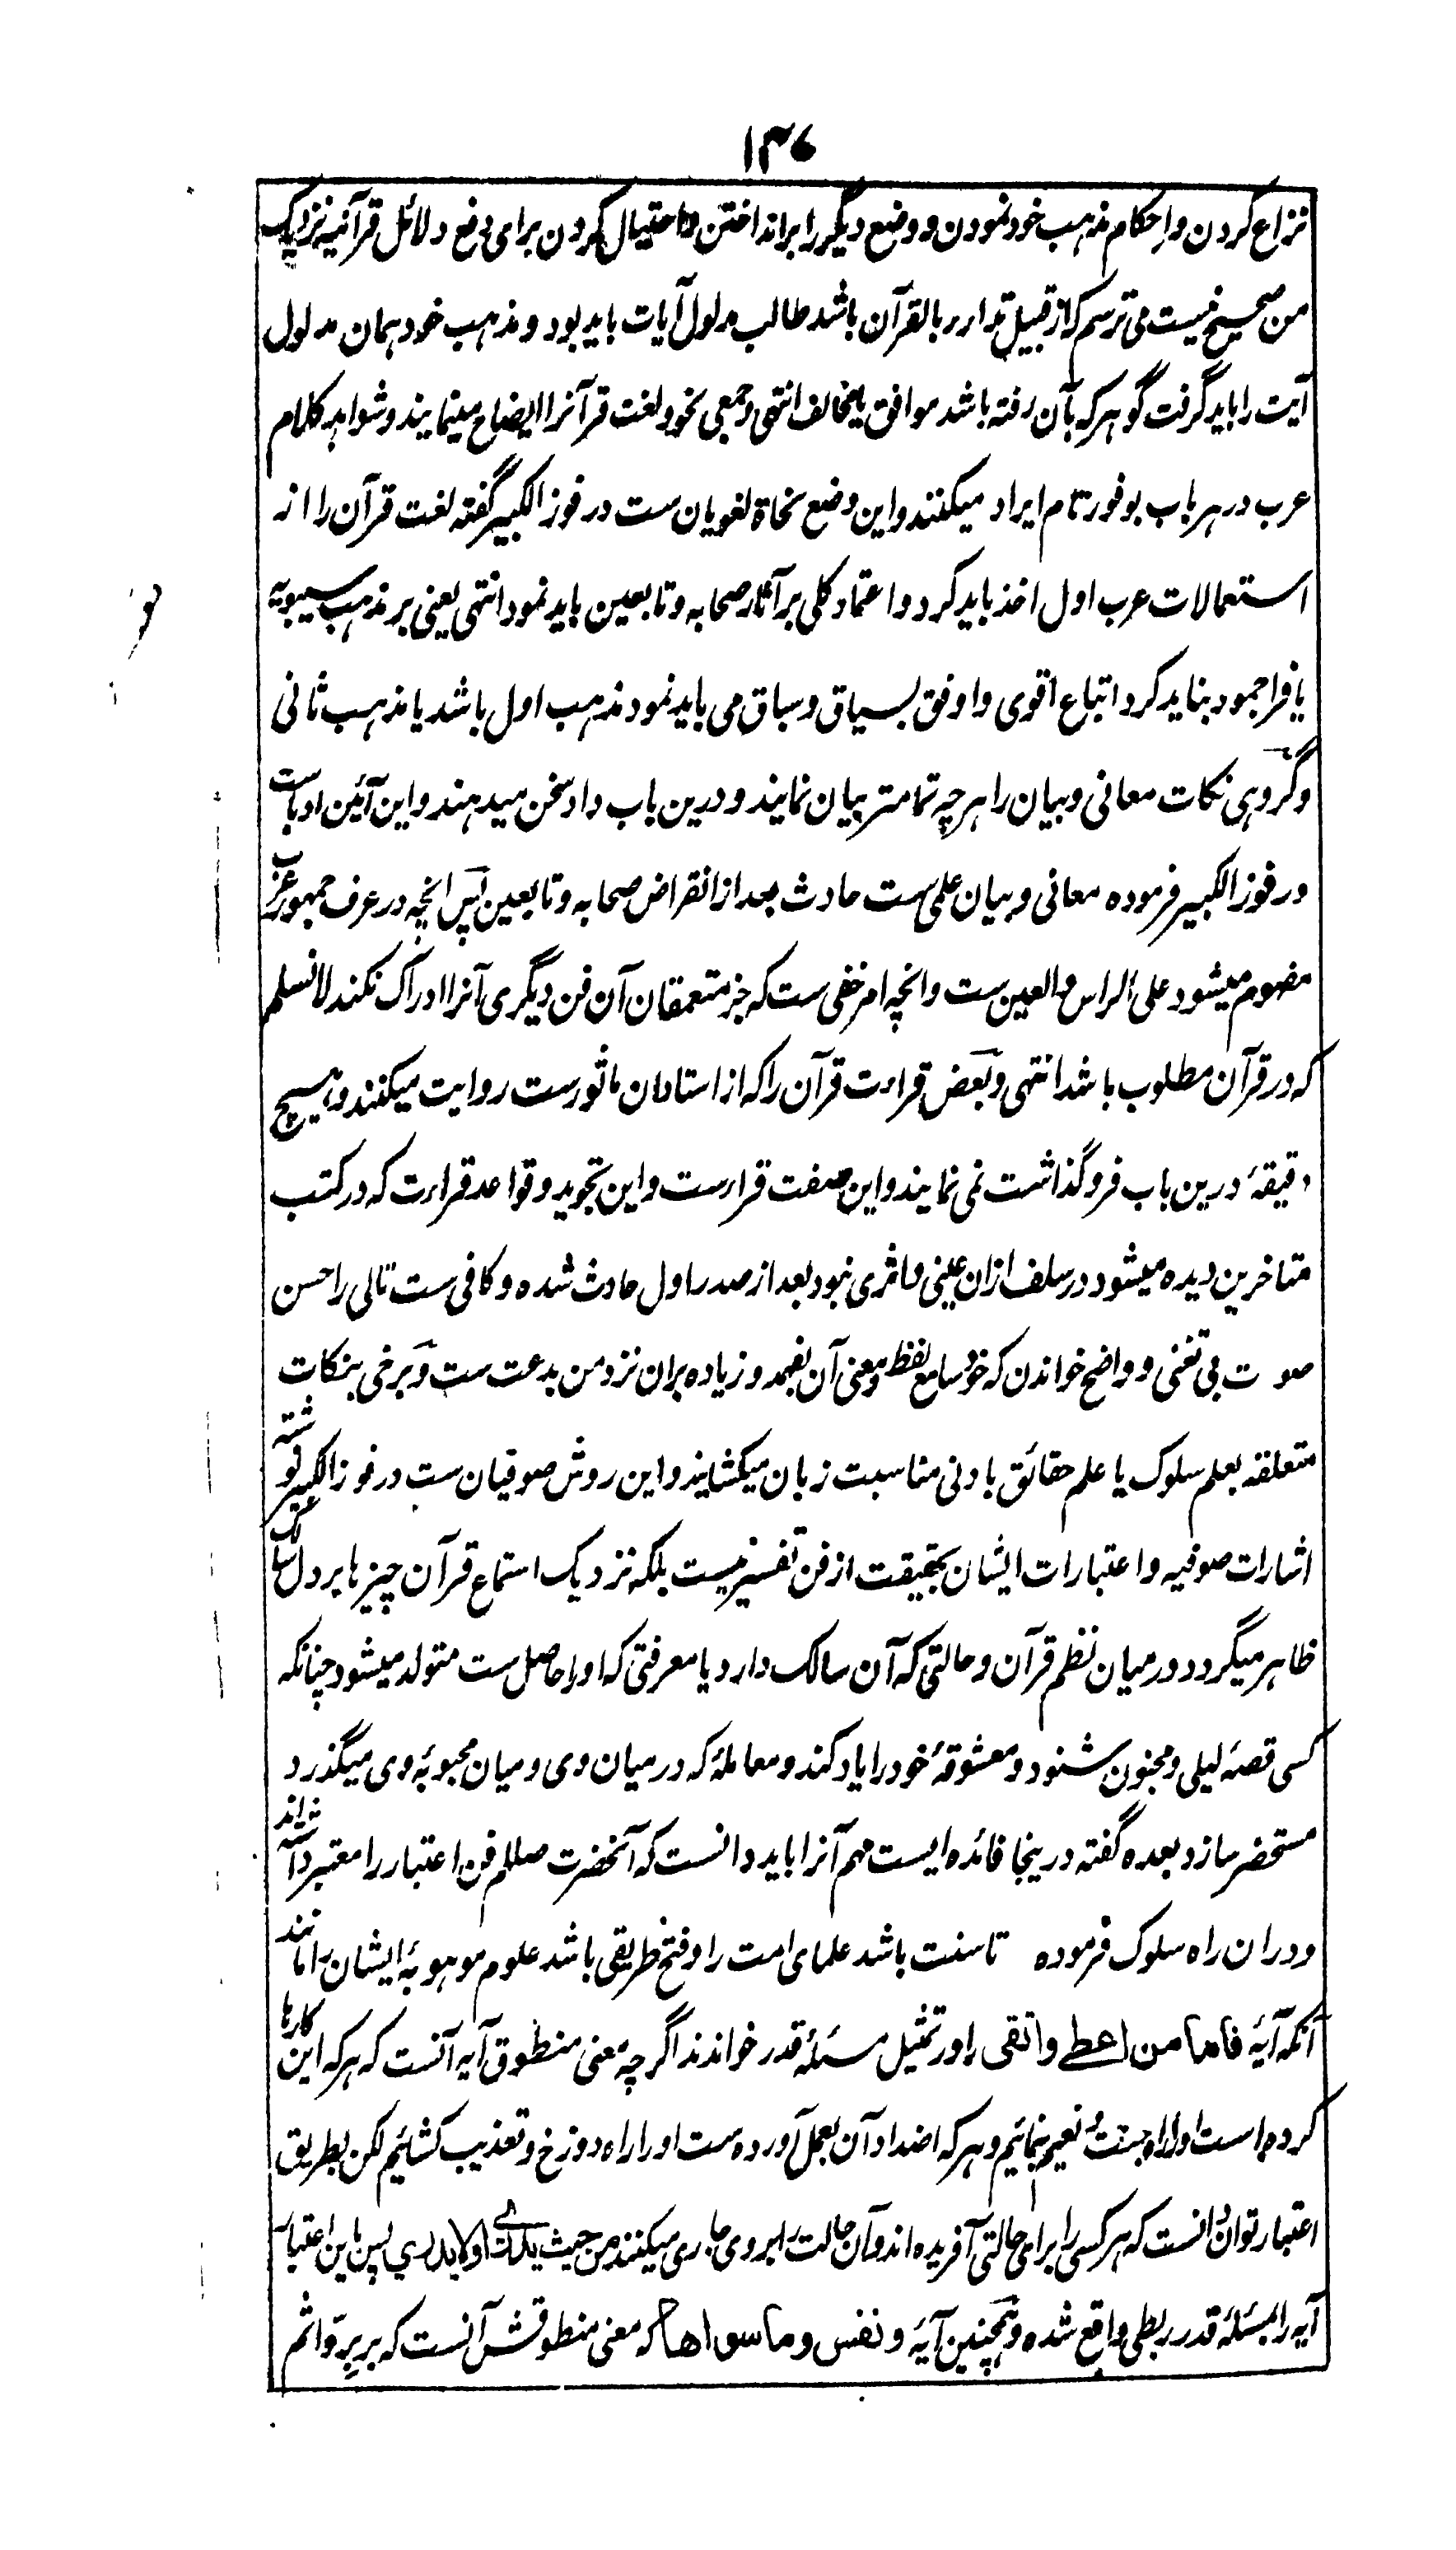 ۱۳۶
نزاع کردن و احکام مذهب خود نمودن و وضع دیگر را برانداختن و احتیال کردن برای دفع دلائل قرآنیه نزدیک
من صحیح نیست می ترسم که از قبیل تدارر بالقرآن باشد طالب مدلول آیات باید بود و مذهب خود همان مدلول
آیت را باید گرفت گو هر که بآن رفته باشد موافق یا مخالف انتهی و جمعی نحو و لغت قرآنرا ایضاح مینمایند و شواهد کلام
عرب در هر باب بوفور تام ایراد میکنند و این وضع نحاة لغویان ست در فوز الکبیر گفته لغت قرآن را از
استعمالات عرب اول اخذ باید کرد و اعتماد کلی بر آثار صحابه و تابعین باید نمود انتهی یعنی بر مذهب سیبویه
یا فرا جمود بناید کرد اتباع اقوی و اوفق بسیاق و سباق می باید نمود مذهب اول باشد یا مذهب ثانی
و گروهی نکات معانی و بیان را هر چه تمامتر بیان نمایند و درین باب داد سخن میدهند و این آئین ادباست
در فوز الکبیر فرموده معانی و بیان علمی ست حادث بعد از انقراض صحابه و تابعین پس انچه در عرف جمهور عرب
مفهوم میشود علی الراس و العین ست و انچه امر خفی ست که جز متعمقان آن فن دیگری آنرا ادراک نکند لا نسلم
که در قرآن مطلوب باشد انتهی و بعض قراءت قرآن را که از استادان ماثورست روایت میکنند و هیچ
دقیقۀ درین باب فروگذاشت نمی نمایند و این صفت قراءست و این تجوید و قواعد قراءت که در کتب
متاخرین دیده میشود در سلف ازان عینی و اثری نبود بعد از صدر اول حادث شده و کافی ست تالی را حسن
صوت بی تغنی و واضح خواندن که خود سامع لفظ و معنی آن بفهمد و زیاده بران نزد من بدعت ست و برخی بنکات
متعلقه بعلم سلوک یا علم حقائق بادنی مناسبت زبان میکشایند و این روش صوفیان ست در فوز الکبیر نوشته
اشارات صوفیه و اعتبارات ایشان بحقیقت از فن تفسیر نیست بلکه نزدیک استماع قرآن چیزها بر دل سالک
ظاهر میگردد و در میان نظم قرآن و حالتی که آن سالک دارد یا معرفتی که او را حاصل ست متولد میشود چنانکه
کسی قصۀ لیلی و مجنون شنود و معشوقۀ خود را یاد کند و معاملۀ که در میان وی و میان محبوبۀ وی میگذرد
مستحضر سازد بعده گفته درینجا فائده ایست مهم آنرا باید دانست که آنحضرت صللم فن اعتبار را معتبر داشته اند
و دران راه سلوک فرموده تا سنت باشد علمای امت را و فتح طریقی باشد علوم موهوبۀ ایشان را مانند
آنکه آیۀ فاما من اعطے واتقی را در تمثیل مسئلۀ قدر خواندند اگرچه معنی منطوق آیه آنست که هر که این کارها
کرده است او را راه جنت و نعیم بنمائیم و هر که اضداد آن بعمل آورده ست او را راه دوزخ و تعذیب کشائیم لکن بطریق
اعتبار توان دانست که هر کسی را برای حالتی آفریده اند و آن حالت را بر وی جاری میکنند من حیث یدری او لا یدری پس باین اعتبار
آیه را بمسئلۀ قدر ربطی واقع شده و همچنین آیۀ ونفس وما سواها که معنی منطوقش آنست که بر بِرّ و اثم